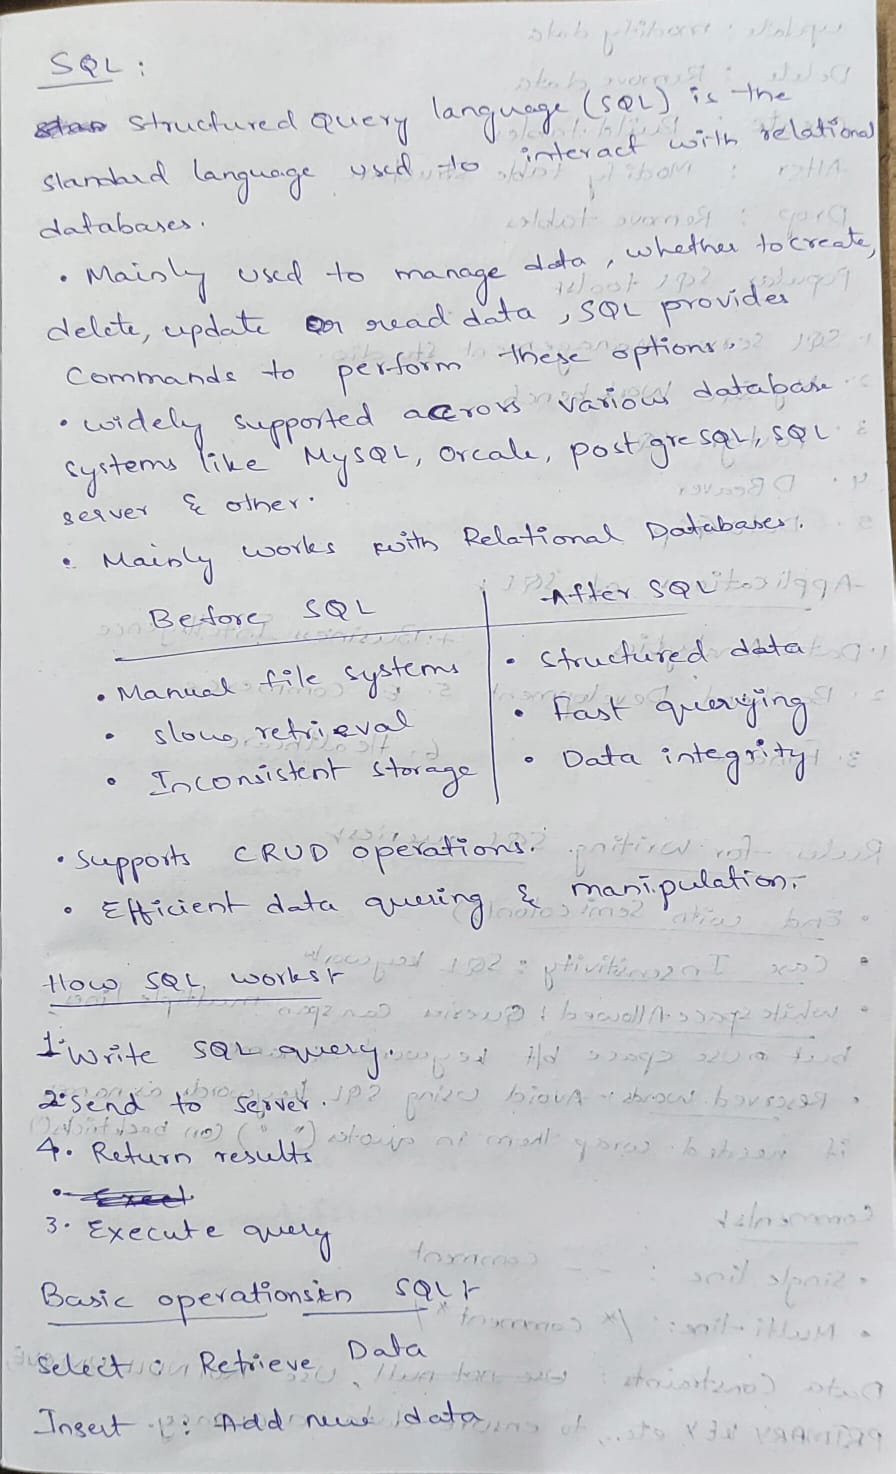 SQL :
Structured Query language (SQL) is the
standard language used to interact with relational
databases.
• Mainly used to manage data, whether to create,
delete, update or read data, SQL provides
Commands to perform these options.
• widely supported across various database
systems like MySQL, Orcale, postgresQL, SQL
server & other.
• Mainly works with Relational Databases.
Before SQL
After SQL
• Manual file systems
• Structured data
• slow retrieval
• Fast querying
• Inconsistent storage
• Data integrity
• Supports CRUD operations.
• Efficient data quering & manipulation.
How SQL works:-
1. Write SQL query.
2. Send to server.
4. Return results
3. Execute query
Basic operations in SQL:-
Select : Retrieve Data
Insert : Add new data